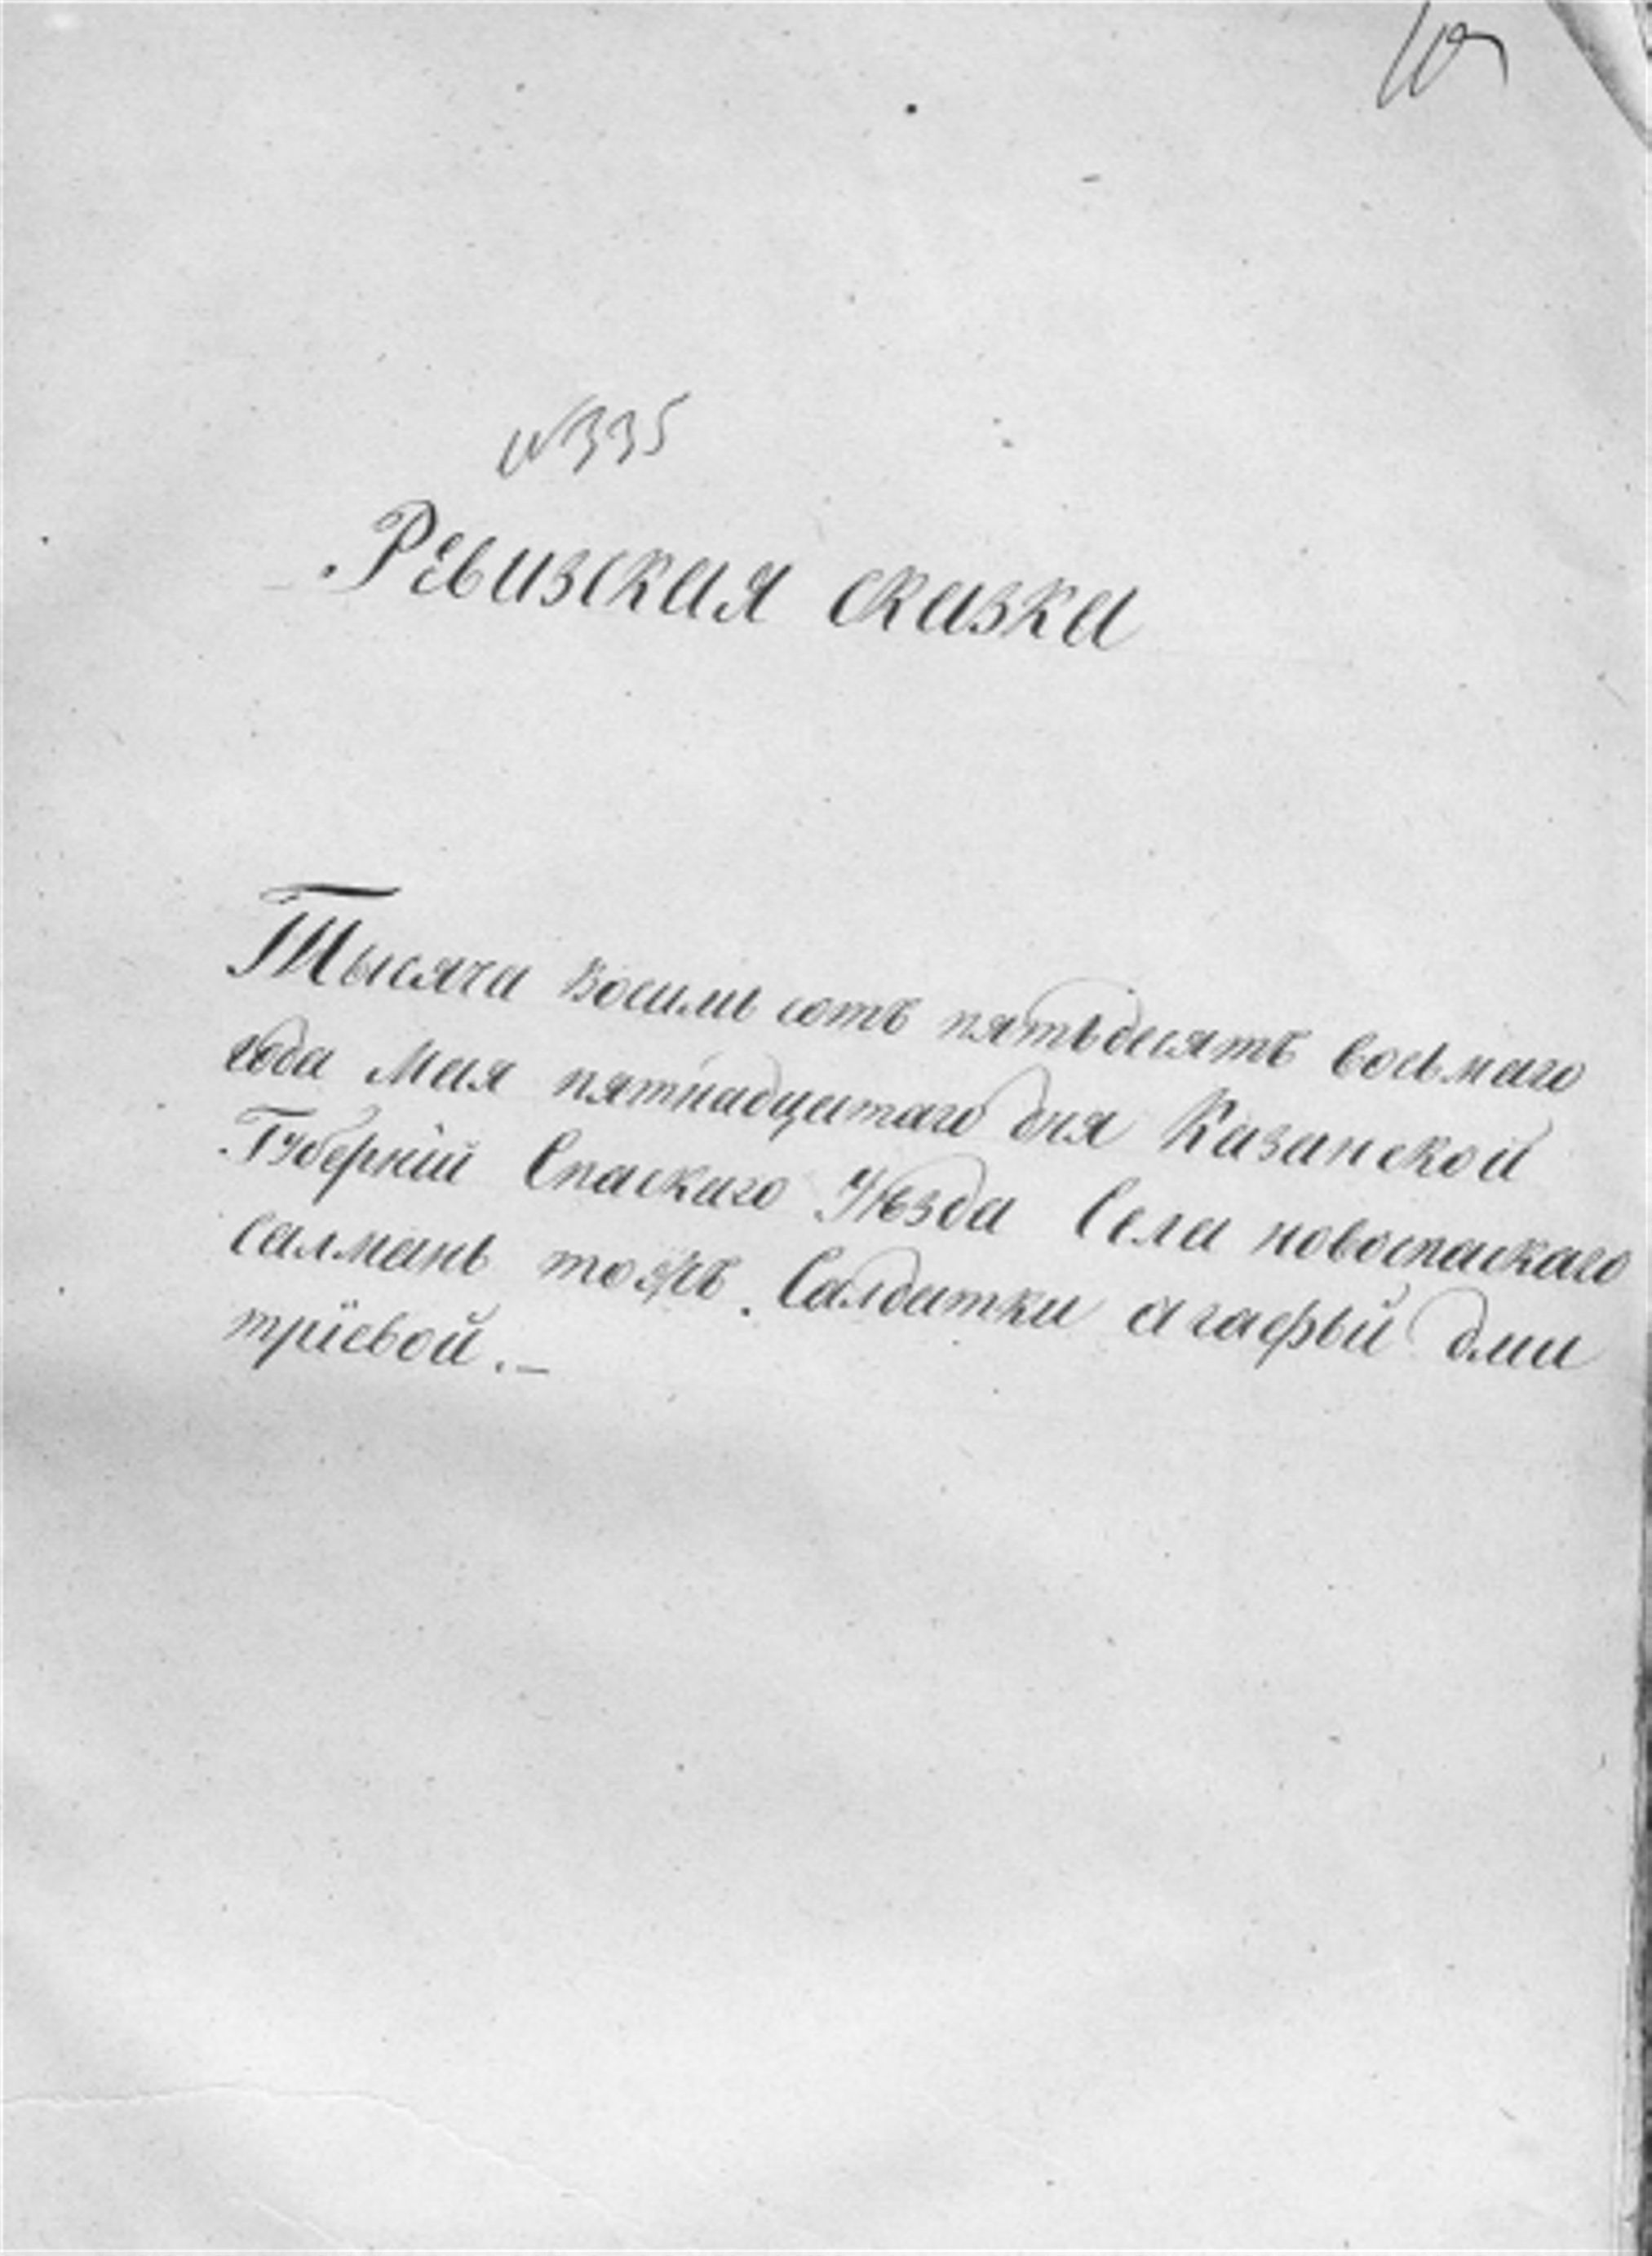 №335
Ревизская сказка
Тысяча восимь сотъ пятьдесятъ восьмаго
года Мая пятнадцатаго дня Казанской
Губерніи Спаскаго Уѣзда Села новоспаскаго
салмань тожъ. Салдатки агафьи дми
тріевой.—